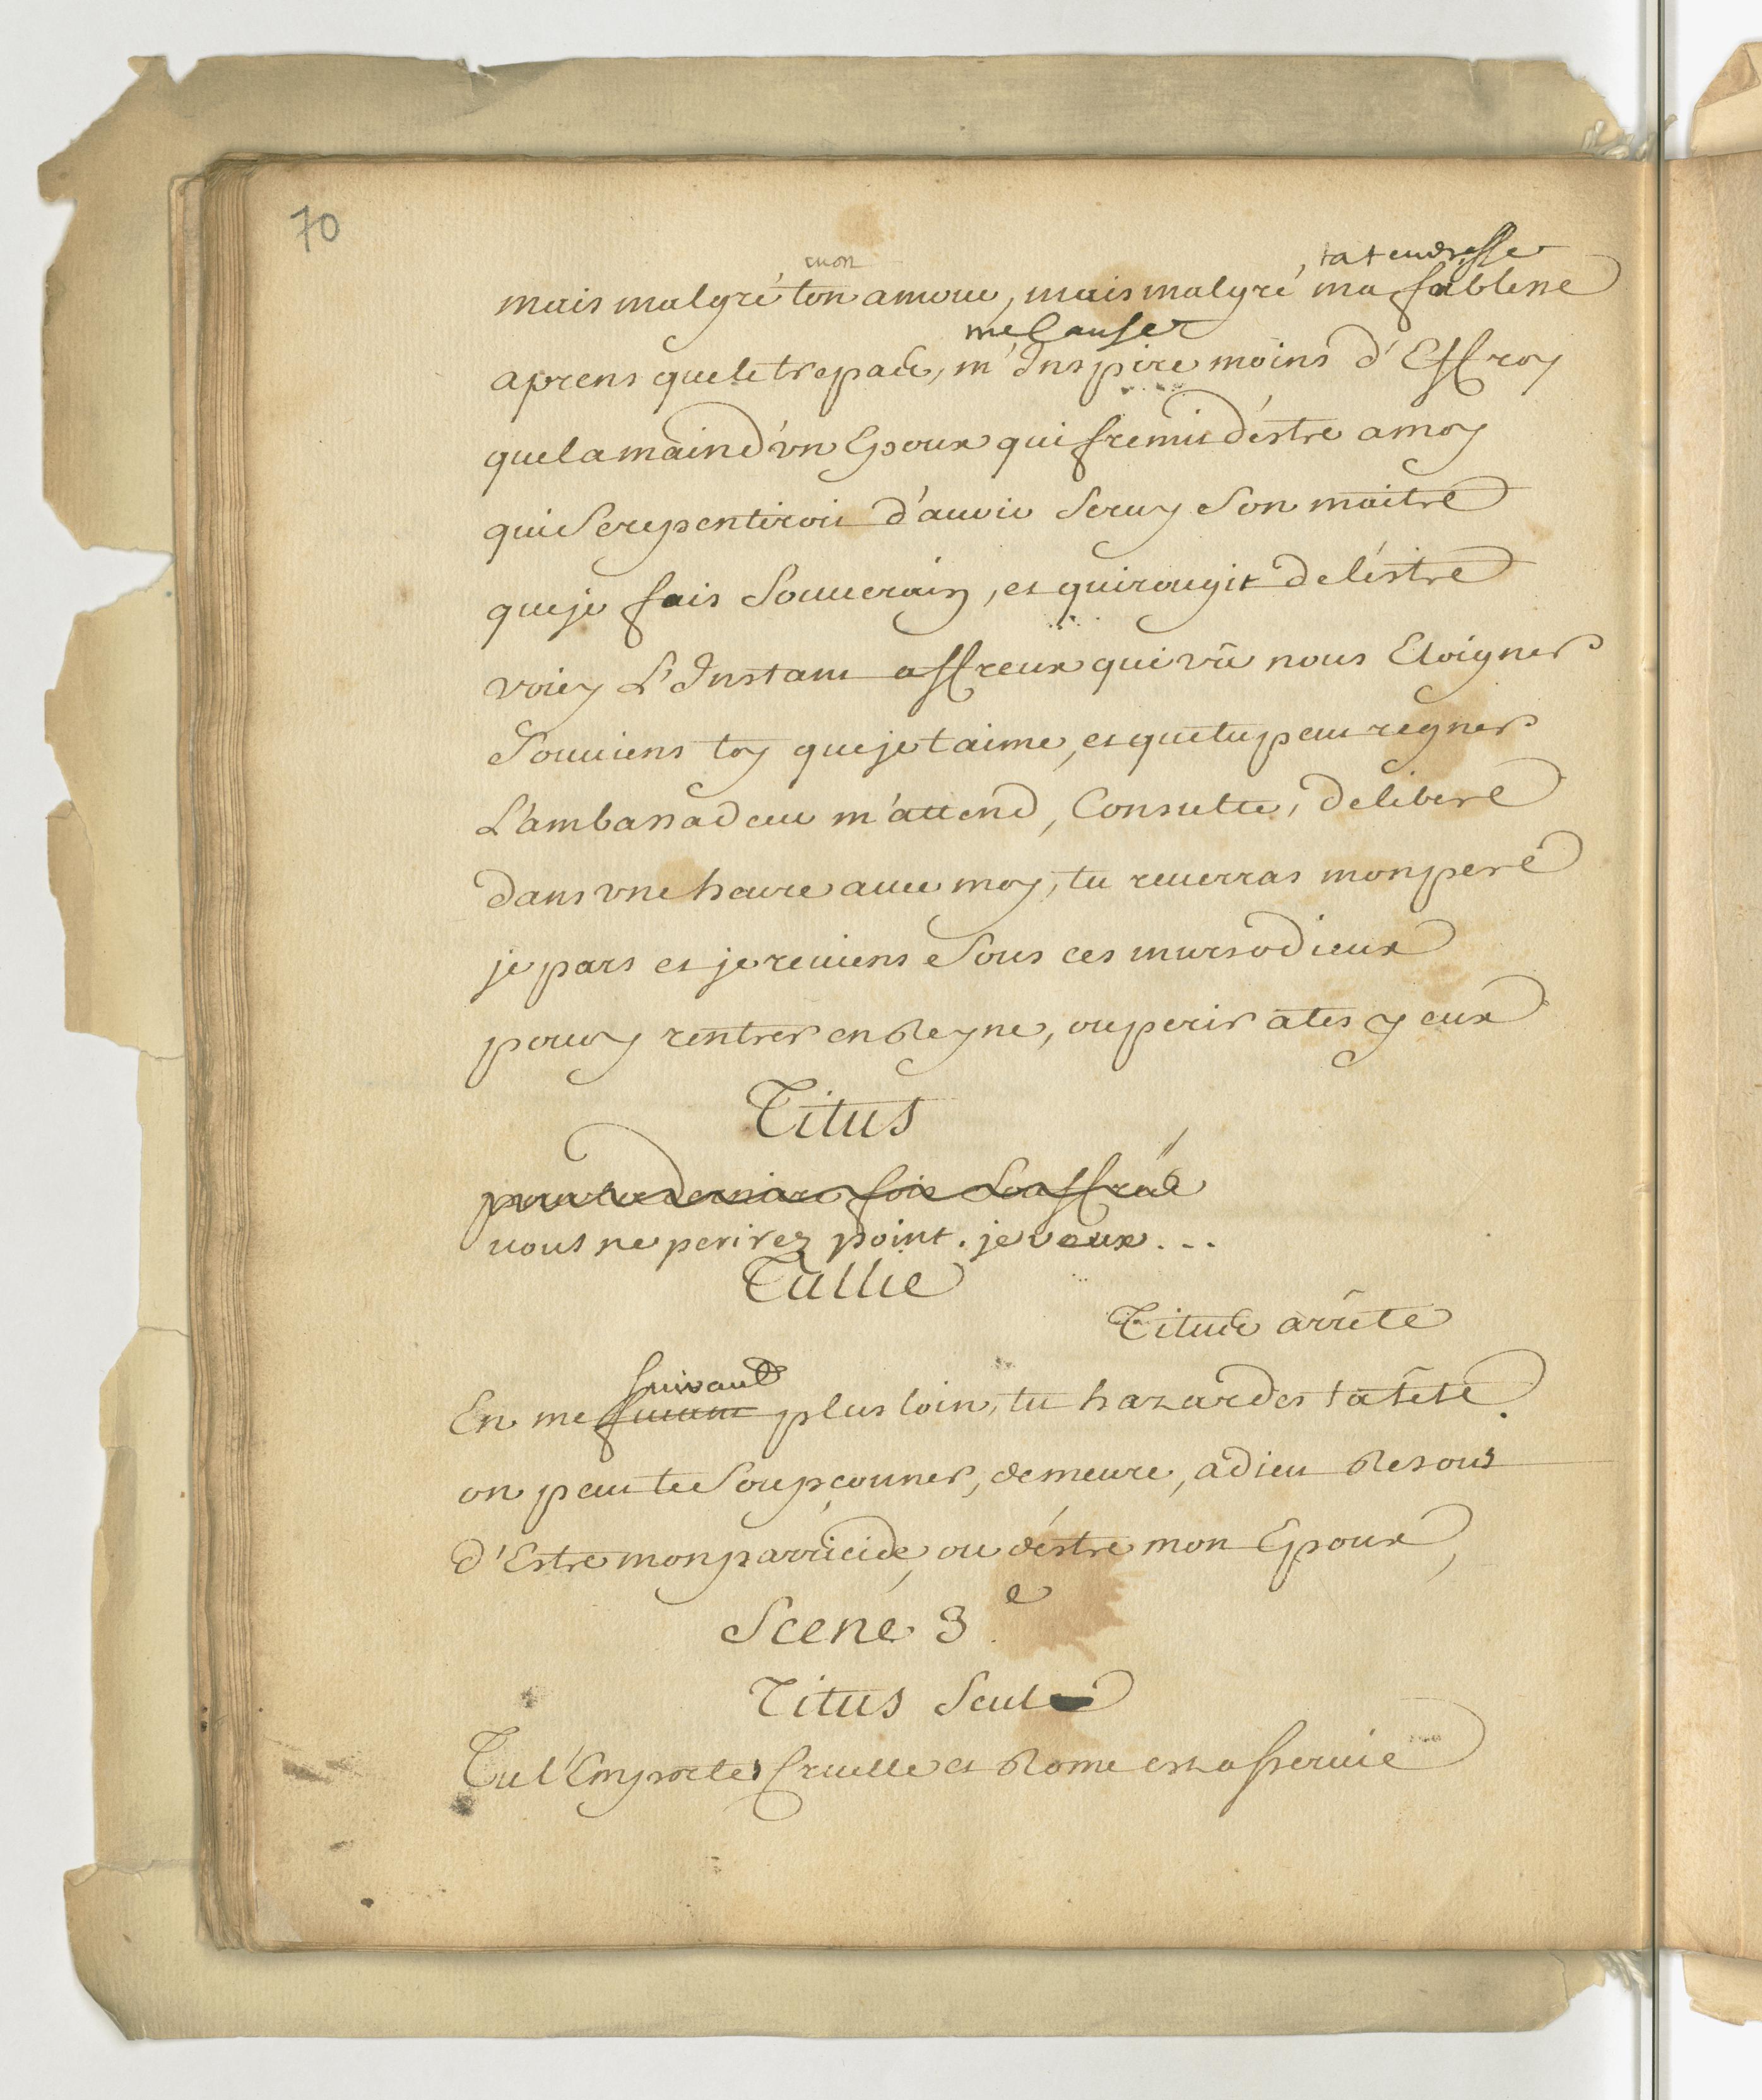 70
mon
ta tendresse
mais malgré ton amour, mais malgré ma foiblesse
me Causer
aprens que le trepas, m'Inspire moins d'Effroy
que la main d'vn Epoux qui fremit d'estre a moy
qui Se repentiroit d'auoir Seruy Son maitre
que je fais Souuerain, et qui rougit de l'estre
voicy L'Instant affreux qui vâ nous Eloigner
Souuiens toy que je taime, et que tu peux regner
L'ambassadeur m'attend, Consulte, delibere
dans vne heure auec moy, tu reuerras mon pere
je pars et je reuiens Sous ces murs odieux
pour y rentrer en Reyne, ou perir a tes yeux
Titus
pour la derniere fois
vous ne perirez point. je veux...
Tullie
Titus arrête
suivant
En me suiuant plus loin, tu hazardes ta tête.
on peut te Soupçonner, demeure, adieu Resous
d'Estre mon parricide, ou d'estre mon Epoux,
Scene 3e
Titus Seul
Tu l'Emportes Cruelle et Rome est asseruie